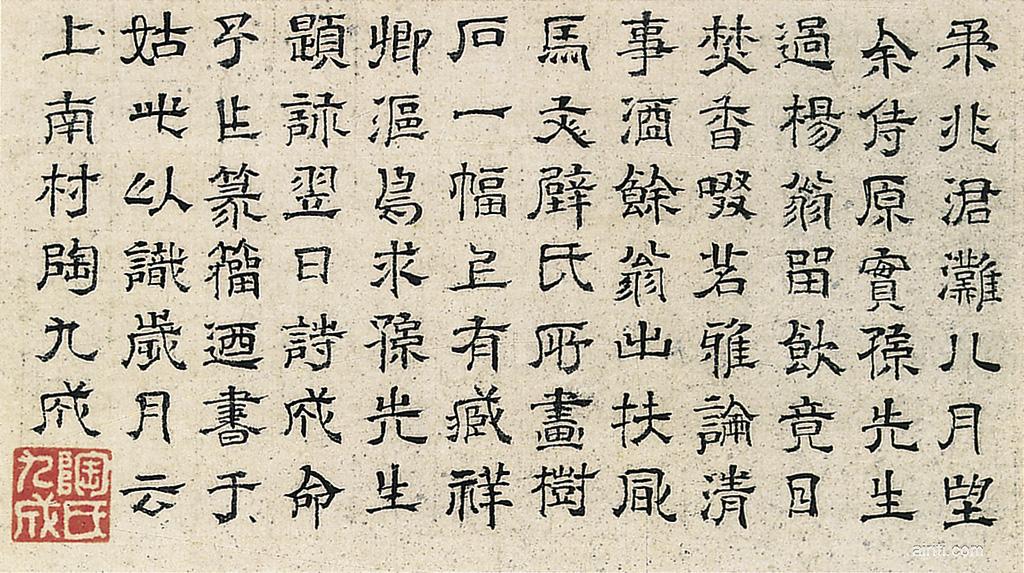 柔兆涒灘八月望
余侍原實孫先生
過楊翁留飲竟日
焚香啜茗雅論清
事酒餘翁出扶風
馬文璧氏所畫樹
石一幅上有臧祥
卿漚求孫先生
題詠翌日詩成命
予乍篆籀迺書于
姑此以識歲月云
上南村陶九成
陶氏
九成